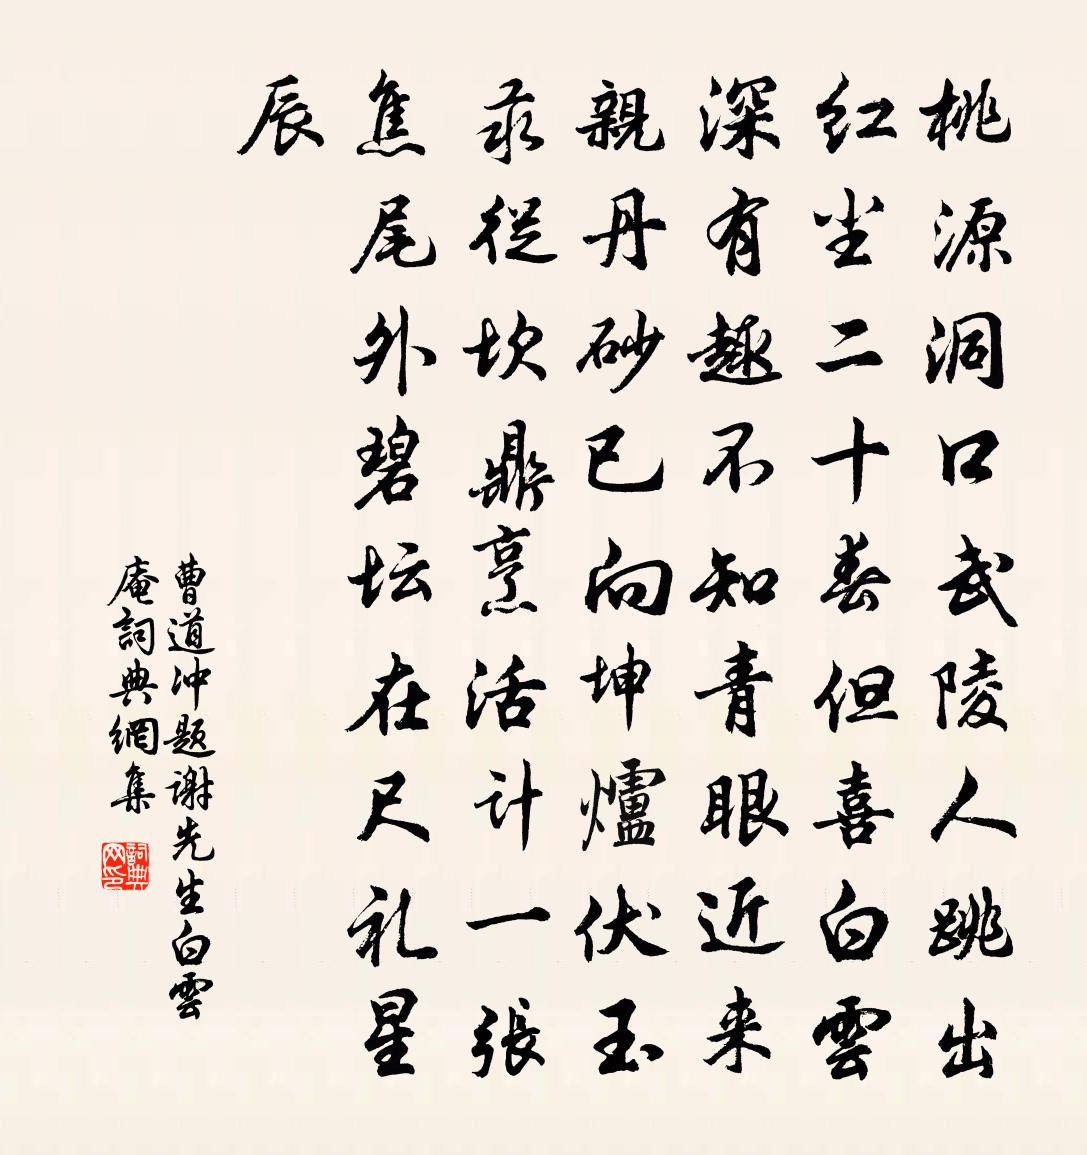 桃源洞口武陵人跳出
红尘二十春但喜白雲
深有趣不知青眼近来
親丹砂已向坤爐伏玉
汞従坎鼎烹活计一張
焦尾外碧坛在尺礼星
辰
曹道冲题谢先生白雲
庵詞典網集
詞典网印